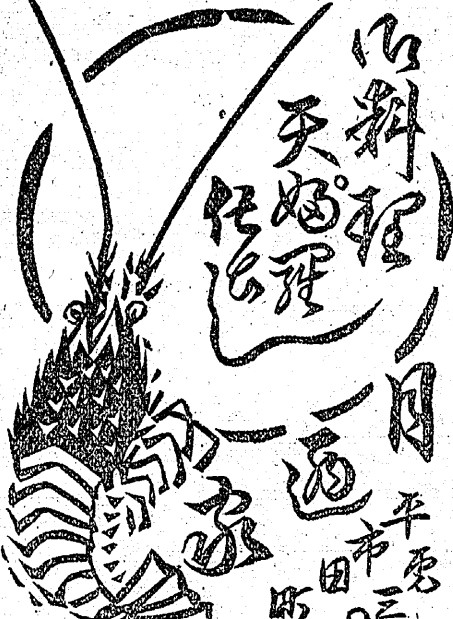 御料理
天婦羅
仕出し
月廼家
平市田町
電三